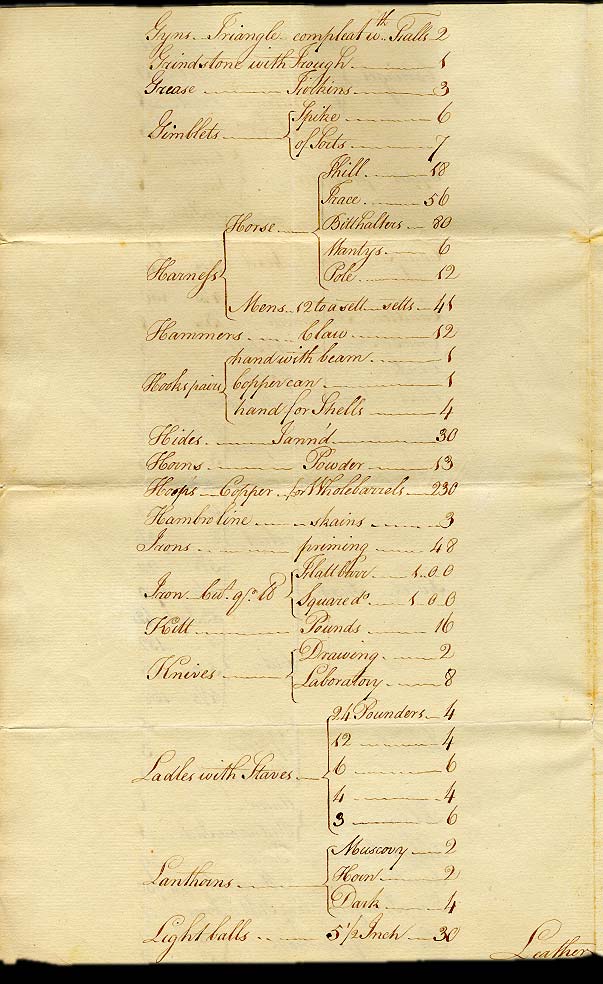 Gyns Triangle compleat wth Falls 2
Grindstone with Trough 1
Grease Firkins 3
Gimblets Spike 6
of Sorts 7
Harness Horse Thill 18
Trace 56
Bitthalters 80
Wantys 6
Pole 12
Mens 12 to a sett setts 41
Hammers Claw 12
Hooks pairs hand with beam 1
Copper can 1
hand for Shells 4
Hides Tann'd 30
Horns Powder 13
Hoops Copper for Wholebarrels 230
Hambroline skains 3
Irons priming 48
Iron Cwt. qrs. lb Flatt barr 1..0 0
Square do 1 0 0
Kitt Pounds 16
Knives Drawing 2
Laboratory 8
Ladles with Staves 24 Pounders 4
12 4
6 6
4 4
3 6
Lanthorns Muscovy 2
Horn 2
Dark 4
Light balls 5 1/2 Inch 30
Leather